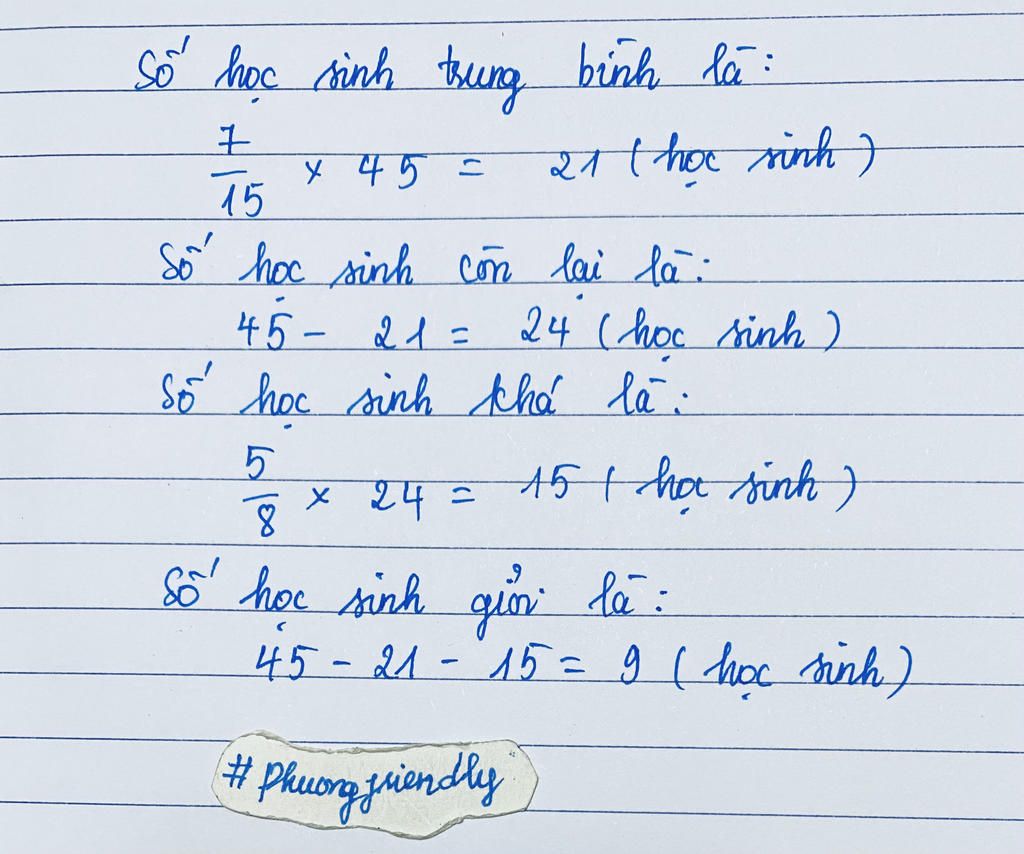 Số học sinh trung bình là:
7/15 × 45 = 21 (học sinh)
Số học sinh còn lại là:
45 - 21 = 24 (học sinh)
Số học sinh khá là:
5/8 × 24 = 15 (học sinh)
Số học sinh giỏi là:
45 - 21 - 15 = 9 (học sinh)
# phuongfriendly